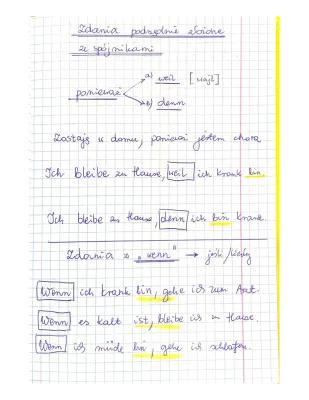 Zdania podrzędnie złożone
ze spójnikami
a) weil [wajl]
ponieważ
b) denn
Zostaję w domu, ponieważ jestem chora
Ich bleibe zu Hause, weil ich krank bin.
Ich bleibe zu Hause, denn ich bin krank.
Zdania z "wenn" → jeśli/kiedy
Wenn ich krank bin, gehe ich zum Arzt.
Wenn es kalt ist, bleibe ich zu Hause.
Wenn ich müde bin, gehe ich schlafen.